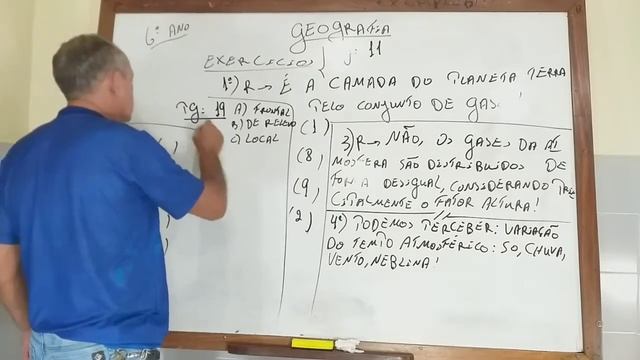 6º ANO
GEOGRAFIA
EXERCÍCIOS J: 11
1º) R→ É A CAMADA DO PLANETA TERRA
PELO CONJUNTO DE GAS
PG: 19 A) FRONTAL
B) DE RELEVO
C) LOCAL
(1)
(8)
(9)
2)
3) R→ NÃO, OS GASES DA AT
MOSFERA SÃO DISTRIBUIDOS DE
FORMA DESIGUAL, CONSIDERANDO PRIN
CIPALMENTE O FATOR ALTURA!
4º) PODEMOS PERCEBER: VARIAÇÃO
DO TEMPO ATMOSFÉRICO: SO, CHUVA,
VENTO, NEBLINA!